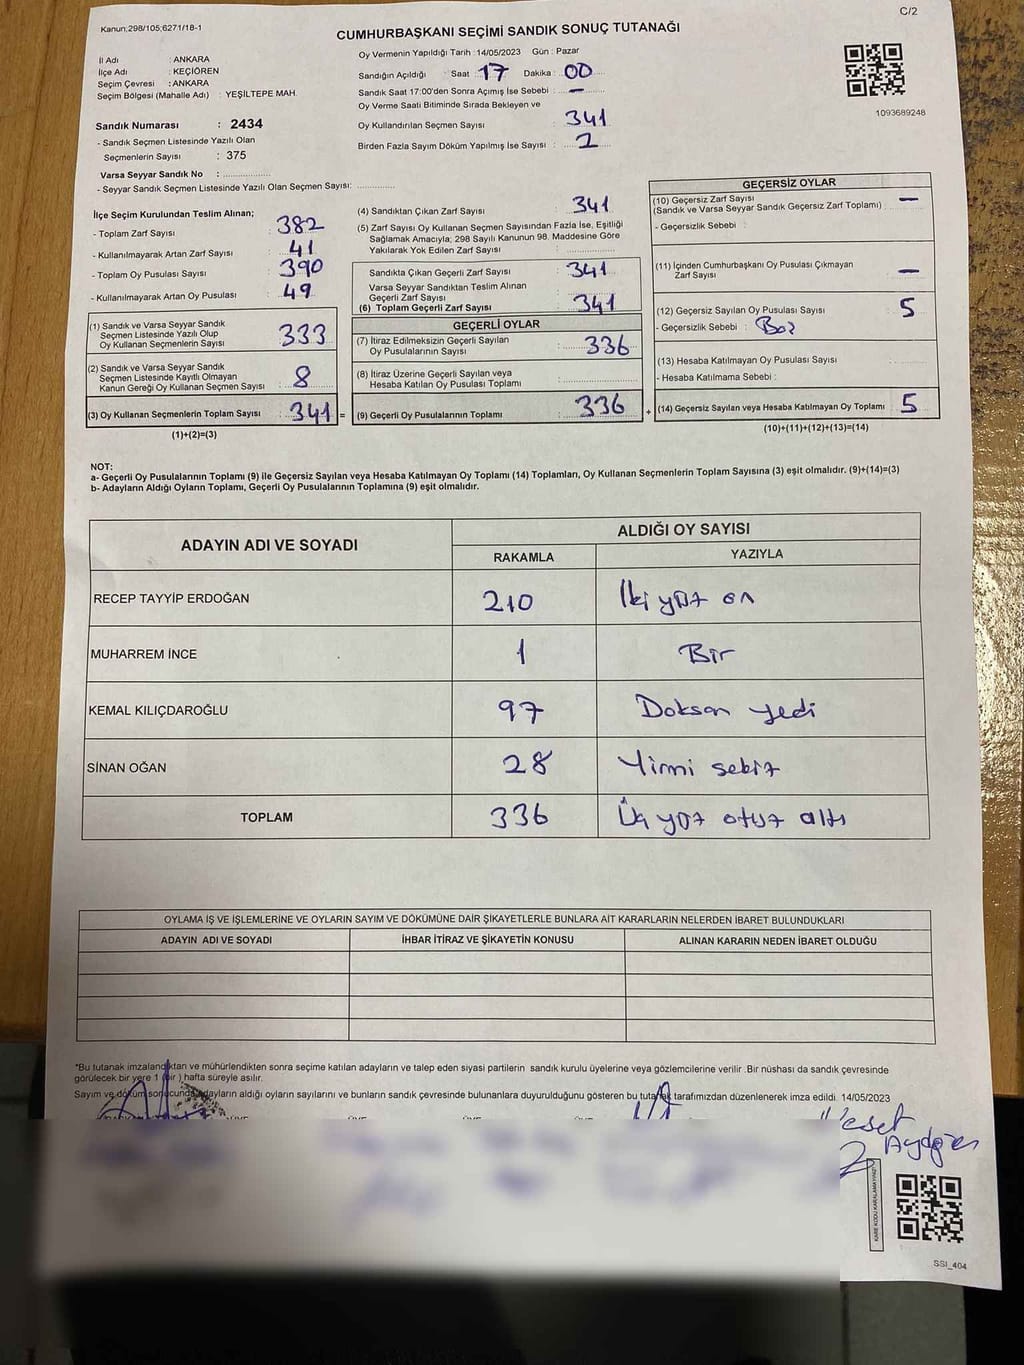 Kanun:298/105;6271/18-1
C/2
CUMHURBAŞKANI SEÇİMİ SANDIK SONUÇ TUTANAĞI
İl Adı : ANKARA
İlçe Adı : KEÇİÖREN
Seçim Çevresi : ANKARA
Seçim Bölgesi (Mahalle Adı) : YEŞİLTEPE MAH.
Sandık Numarası : 2434
- Sandık Seçmen Listesinde Yazılı Olan
Seçmenlerin Sayısı : 375
Varsa Seyyar Sandık No :
- Seyyar Sandık Seçmen Listesinde Yazılı Olan Seçmen Sayısı:
Oy Vermenin Yapıldığı Tarih : 14/05/2023 Gün : Pazar
Sandığın Açıldığı : Saat 17 Dakika : 00
Sandık Saat 17:00'den Sonra Açımış İse Sebebi : —
Oy Verme Saati Bitiminde Sırada Bekleyen ve
Oy Kullandırılan Seçmen Sayısı : 341
Birden Fazla Sayım Döküm Yapılmış İse Sayısı : 2
1093689248
İlçe Seçim Kurulundan Teslim Alınan;
- Toplam Zarf Sayısı : 382
- Kullanılmayarak Artan Zarf Sayısı : 41
- Toplam Oy Pusulası Sayısı : 390
- Kullanılmayarak Artan Oy Pusulası : 49
(1) Sandık ve Varsa Seyyar Sandık
Seçmen Listesinde Yazılı Olup
Oy Kullanan Seçmenlerin Sayısı : 333
(2) Sandık ve Varsa Seyyar Sandık
Seçmen Listesinde Kayıtlı Olmayan
Kanun Gereği Oy Kullanan Seçmen Sayısı : 8
(3) Oy Kullanan Seçmenlerin Toplam Sayısı : 341 =
(1)+(2)=(3)
(4) Sandıktan Çıkan Zarf Sayısı : 341
(5) Zarf Sayısı Oy Kullanan Seçmen Sayısından Fazla İse, Eşitliği
Sağlamak Amacıyla; 298 Sayılı Kanunun 98. Maddesine Göre
Yakılarak Yok Edilen Zarf Sayısı :
Sandıkta Çıkan Geçerli Zarf Sayısı : 341
Varsa Seyyar Sandıktan Teslim Alınan
Geçerli Zarf Sayısı
(6) Toplam Geçerli Zarf Sayısı : 341
GEÇERLİ OYLAR
(7) İtiraz Edilmeksizin Geçerli Sayılan
Oy Pusulalarının Sayısı : 336
(8) İtiraz Üzerine Geçerli Sayılan veya
Hesaba Katılan Oy Pusulası Toplamı :
(9) Geçerli Oy Pusulalarının Toplamı : 336 +
GEÇERSİZ OYLAR
(10) Geçersiz Zarf Sayısı
(Sandık ve Varsa Seyyar Sandık Geçersiz Zarf Toplamı) : —
- Geçersizlik Sebebi :
(11) İçinden Cumhurbaşkanı Oy Pusulası Çıkmayan
Zarf Sayısı : —
(12) Geçersiz Sayılan Oy Pusulası Sayısı : 5
- Geçersizlik Sebebi :
(13) Hesaba Katılmayan Oy Pusulası Sayısı :
- Hesaba Katılmama Sebebi :
(14) Geçersiz Sayılan veya Hesaba Katılmayan Oy Toplamı : 5
(10)+(11)+(12)+(13)=(14)
NOT:
a- Geçerli Oy Pusulalarının Toplamı (9) ile Geçersiz Sayılan veya Hesaba Katılmayan Oy Toplamı (14) Toplamları, Oy Kullanan Seçmenlerin Toplam Sayısına (3) eşit olmalıdır. (9)+(14)=(3)
b- Adayların Aldığı Oyların Toplamı, Geçerli Oy Pusulalarının Toplamına (9) eşit olmalıdır.
ADAYIN ADI VE SOYADI ALDIĞI OY SAYISI
RAKAMLA YAZIYLA
RECEP TAYYİP ERDOĞAN 210 İki yüz on
MUHARREM İNCE 1 Bir
KEMAL KILIÇDAROĞLU 97 Doksan yedi
SİNAN OĞAN 28 Yirmi sekiz
TOPLAM 336 Üç yüz otuz altı
OYLAMA İŞ VE İŞLEMLERİNE VE OYLARIN SAYIM VE DÖKÜMÜNE DAİR ŞİKAYETLERLE BUNLARA AİT KARARLARIN NELERDEN İBARET BULUNDUKLARI
ADAYIN ADI VE SOYADI İHBAR İTİRAZ VE ŞİKAYETİN KONUSU ALINAN KARARIN NEDEN İBARET OLDUĞU
*Bu tutanak imzalandıktan ve mühürlendikten sonra seçime katılan adayların ve talep eden siyasi partilerin sandık kurulu üyelerine veya gözlemcilerine verilir .Bir nüshası da sandık çevresinde
görülecek bir yere 1 (bir ) hafta süreyle asılır.
Sayım ve döküm sonucunda adayların aldığı oyların sayılarını ve bunların sandık çevresinde bulunanlara duyurulduğunu gösteren bu tutanak tarafımızdan düzenlenerek imza edildi. 14/05/2023
KARE KODU KARALAMAYINIZ
SSI_404